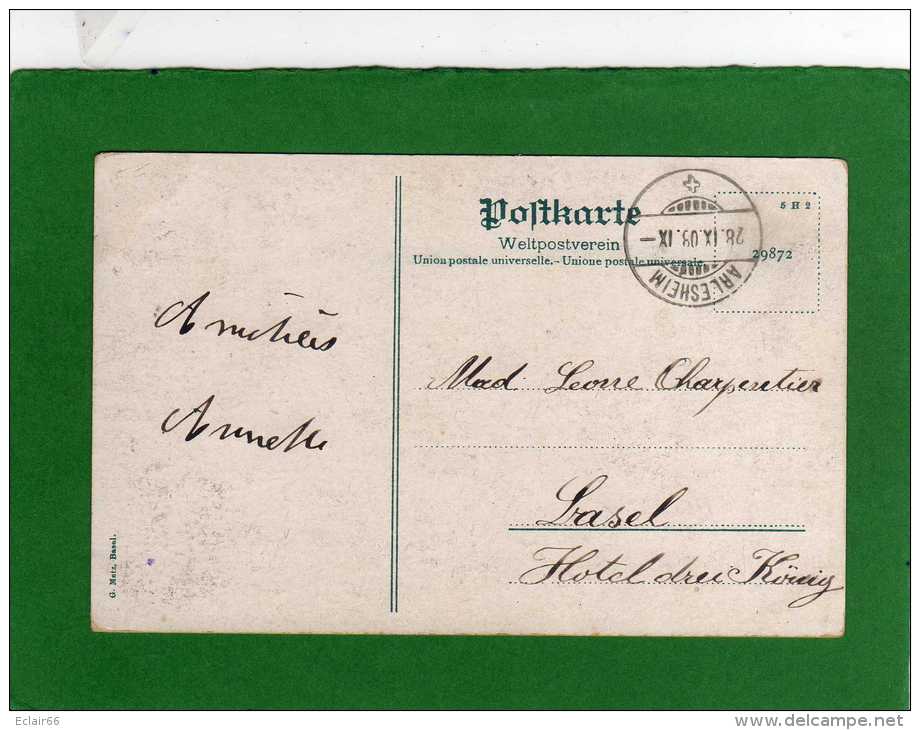 Postkarte
Weltpostverein
Union postale universelle. - Unione postale universale.
5 H 2
29872
28. IX. 09. IX –
ARLESHEIM
Amitiés
Annette
Mad Leone Charpentier
Basel
Hotel drei König
G. Metz, Basel.
Eclair66
www.delcampe.net